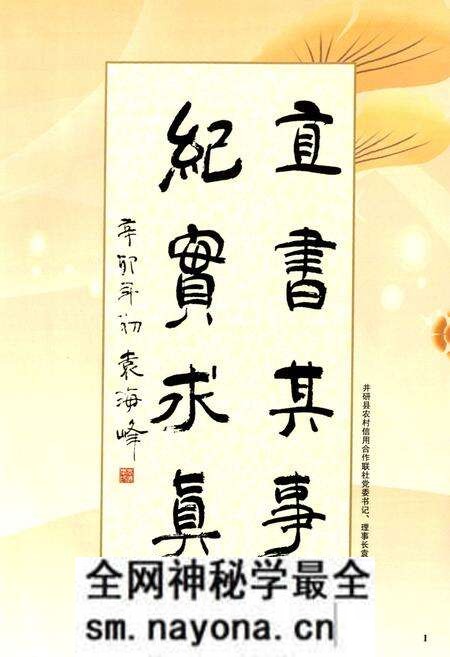 直書其事
紀實求真
辛卯年初袁海峰
井研县农村信用合作联社党委书记、理事长袁
全网神秘学最全
sm.nayona.cn
1